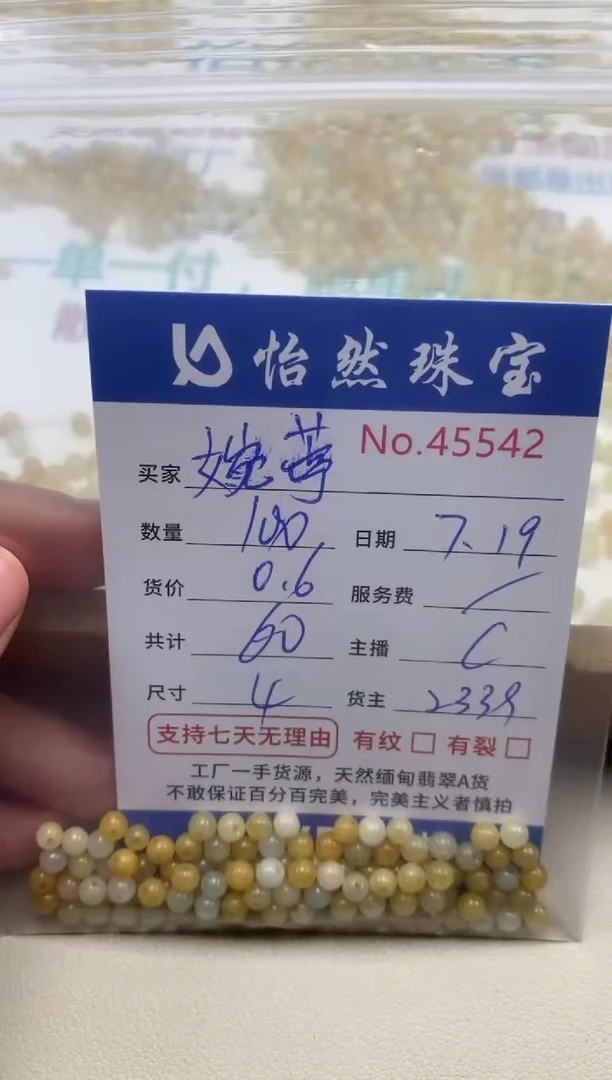 一单一付，
怡然珠宝
No.45542
买家 婉
数量 100 日期 7.19
货价 0.6 服务费 /
共计 60 主播 C
尺寸 4 货主 2339
支持七天无理由 有纹 □ 有裂 □
工厂一手货源，天然缅甸翡翠A货
不敢保证百分百完美，完美主义者慎拍